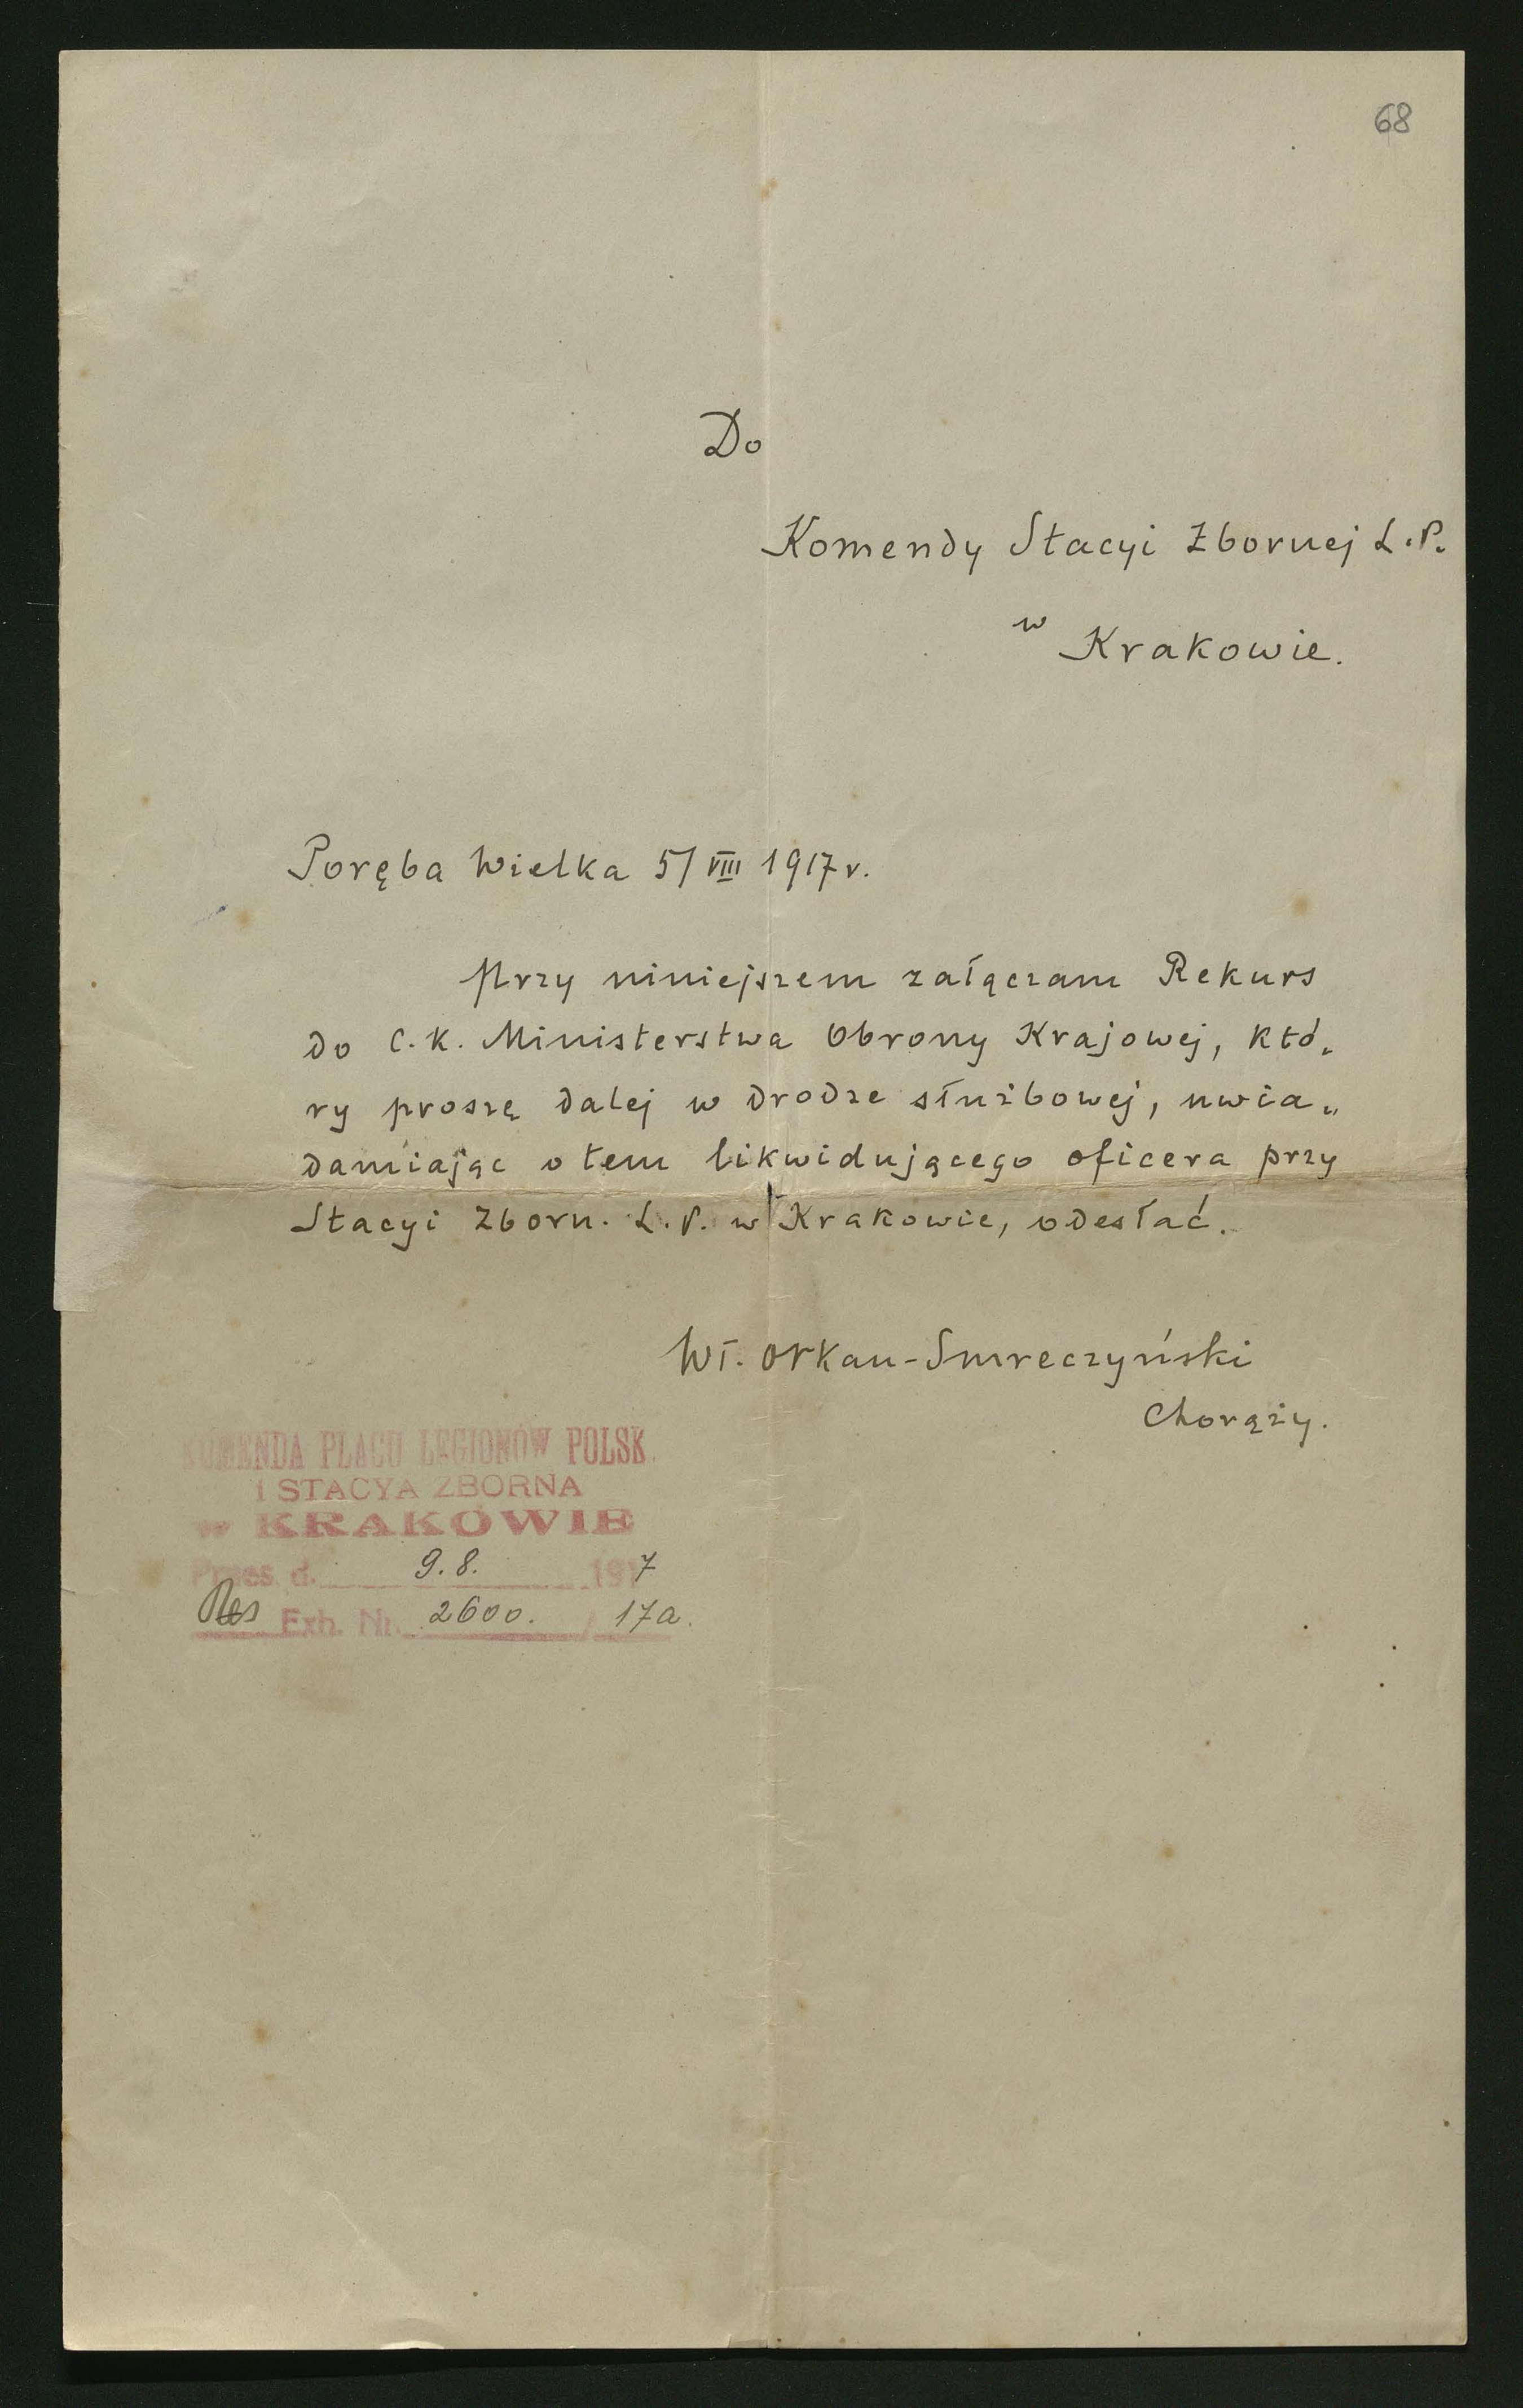 68
Do
Komendy Stacyi Zbornej L.P.
w Krakowie.
Poręba Wielka 5/VIII 1917 r.
Przy niniejszem załączam Rekurs
do C.K. Ministerstwa Obrony Krajowej, któ„
ry proszę dalej w drodze służbowej, uwia„
damiając o tem likwidującego oficera przy
Stacyi Zborn. L.P. w Krakowie, odesłać.
Wł. Orkan-Smreczyński
Chorąży.
KOMENDA PLACU LEGIONÓW POLSK.
I STACYA ZBORNA
w KRAKOWIE
Praes. d. 9.8. 1917
Res Exh. Nr. 2600. / 17a.